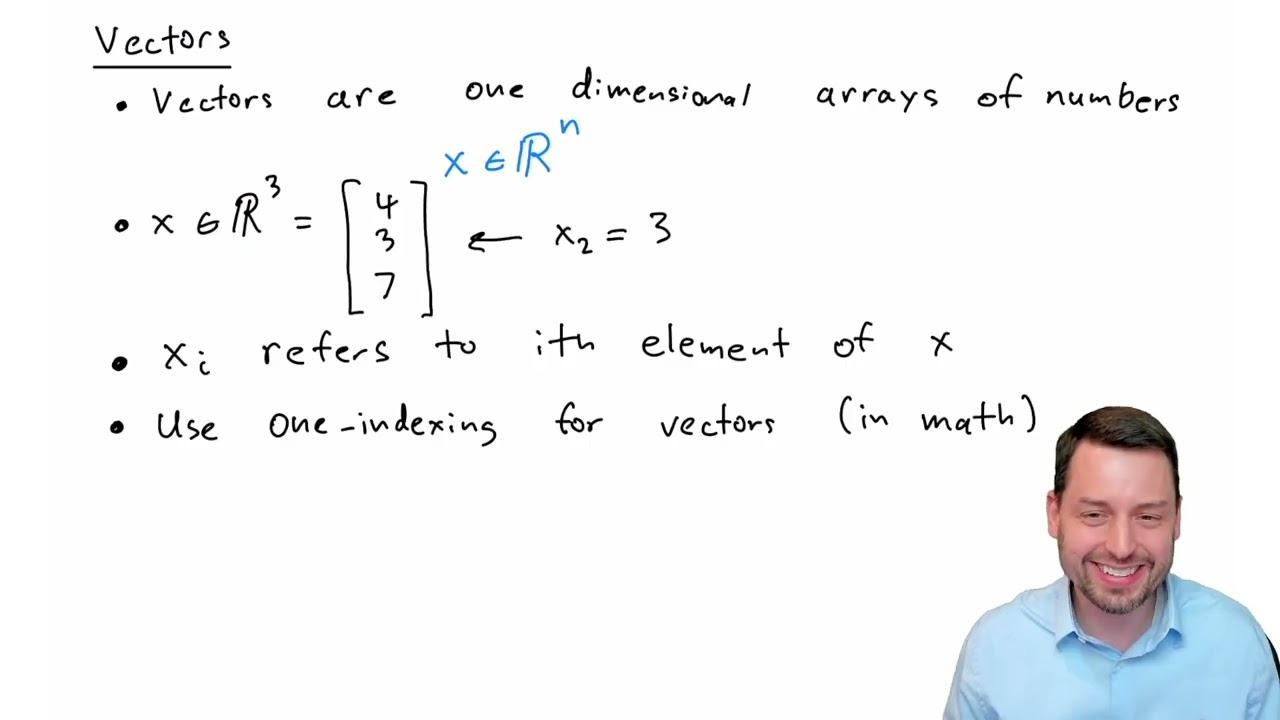 Vectors
• Vectors are one dimensional arrays of numbers
x ∈ ℝⁿ
• x ∈ ℝ³ = [4 3 7] ← x₂ = 3
• xᵢ refers to ith element of x
• Use one-indexing for vectors (in math)